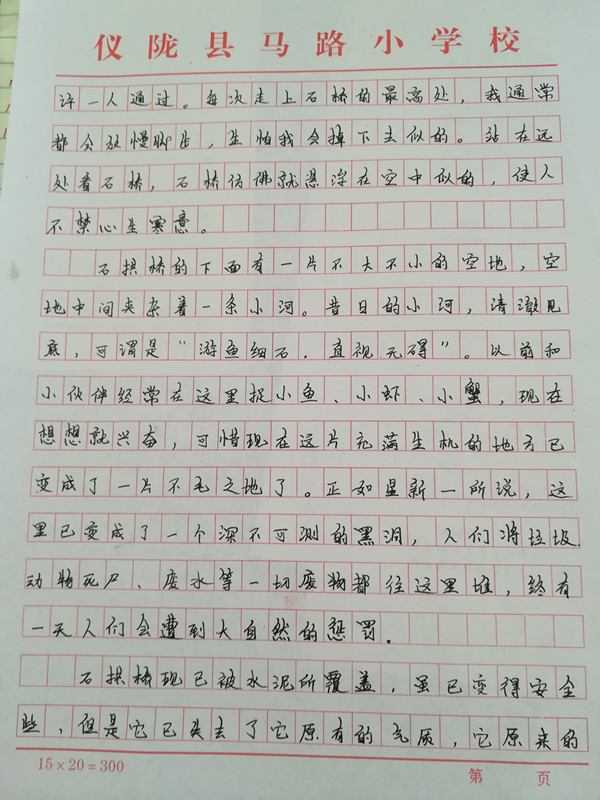 仪陇县马路小学校
许一人通过。每次走上石桥的最高处，我通常
都会放慢脚步，生怕我会掉下去似的。站在远
处看石桥，石桥仿佛就悬浮在空中似的，使人
不禁心生寒意。
石拱桥的下面有一片不大不小的空地，空
地中间夹杂着一条小河。昔日的小河，清澈见
底，可谓是“游鱼细石，直视无碍”。以前和
小伙伴经常在这里捉小鱼、小虾、小蟹，现在
想想就兴奋，可惜现在这片充满生机的地方已
变成了一片不毛之地了。正如星新一所说，这
里已变成了一个深不可测的黑洞，人们将垃圾、
动物死尸、废水等一切废物都往这里堆，终有
一天人们会遭到大自然的惩罚。
石拱桥现已被水泥所覆盖，虽已变得安全
些，但是它已失去了它原有的气质，它原来的
15×20=300
第 页